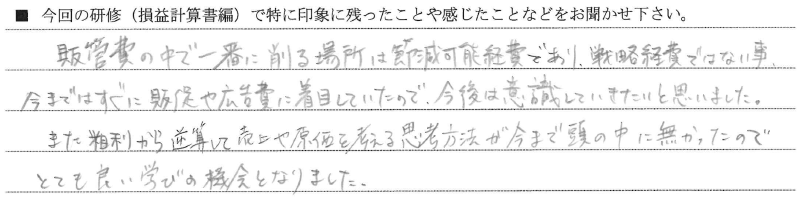 ■ 今回の研修（損益計算書編）で特に印象に残ったことや感じたことなどをお聞かせ下さい。
販管費の中で一番に削る場所は節減可能経費であり、戦略経費ではない事、
今まではすぐに販促や広告費に着目していたので、今後は意識していきたいと思いました。
また粗利から逆算して売上や原価を考える思考方法が今まで頭の中に無かったので
とても良い学びの機会となりました。